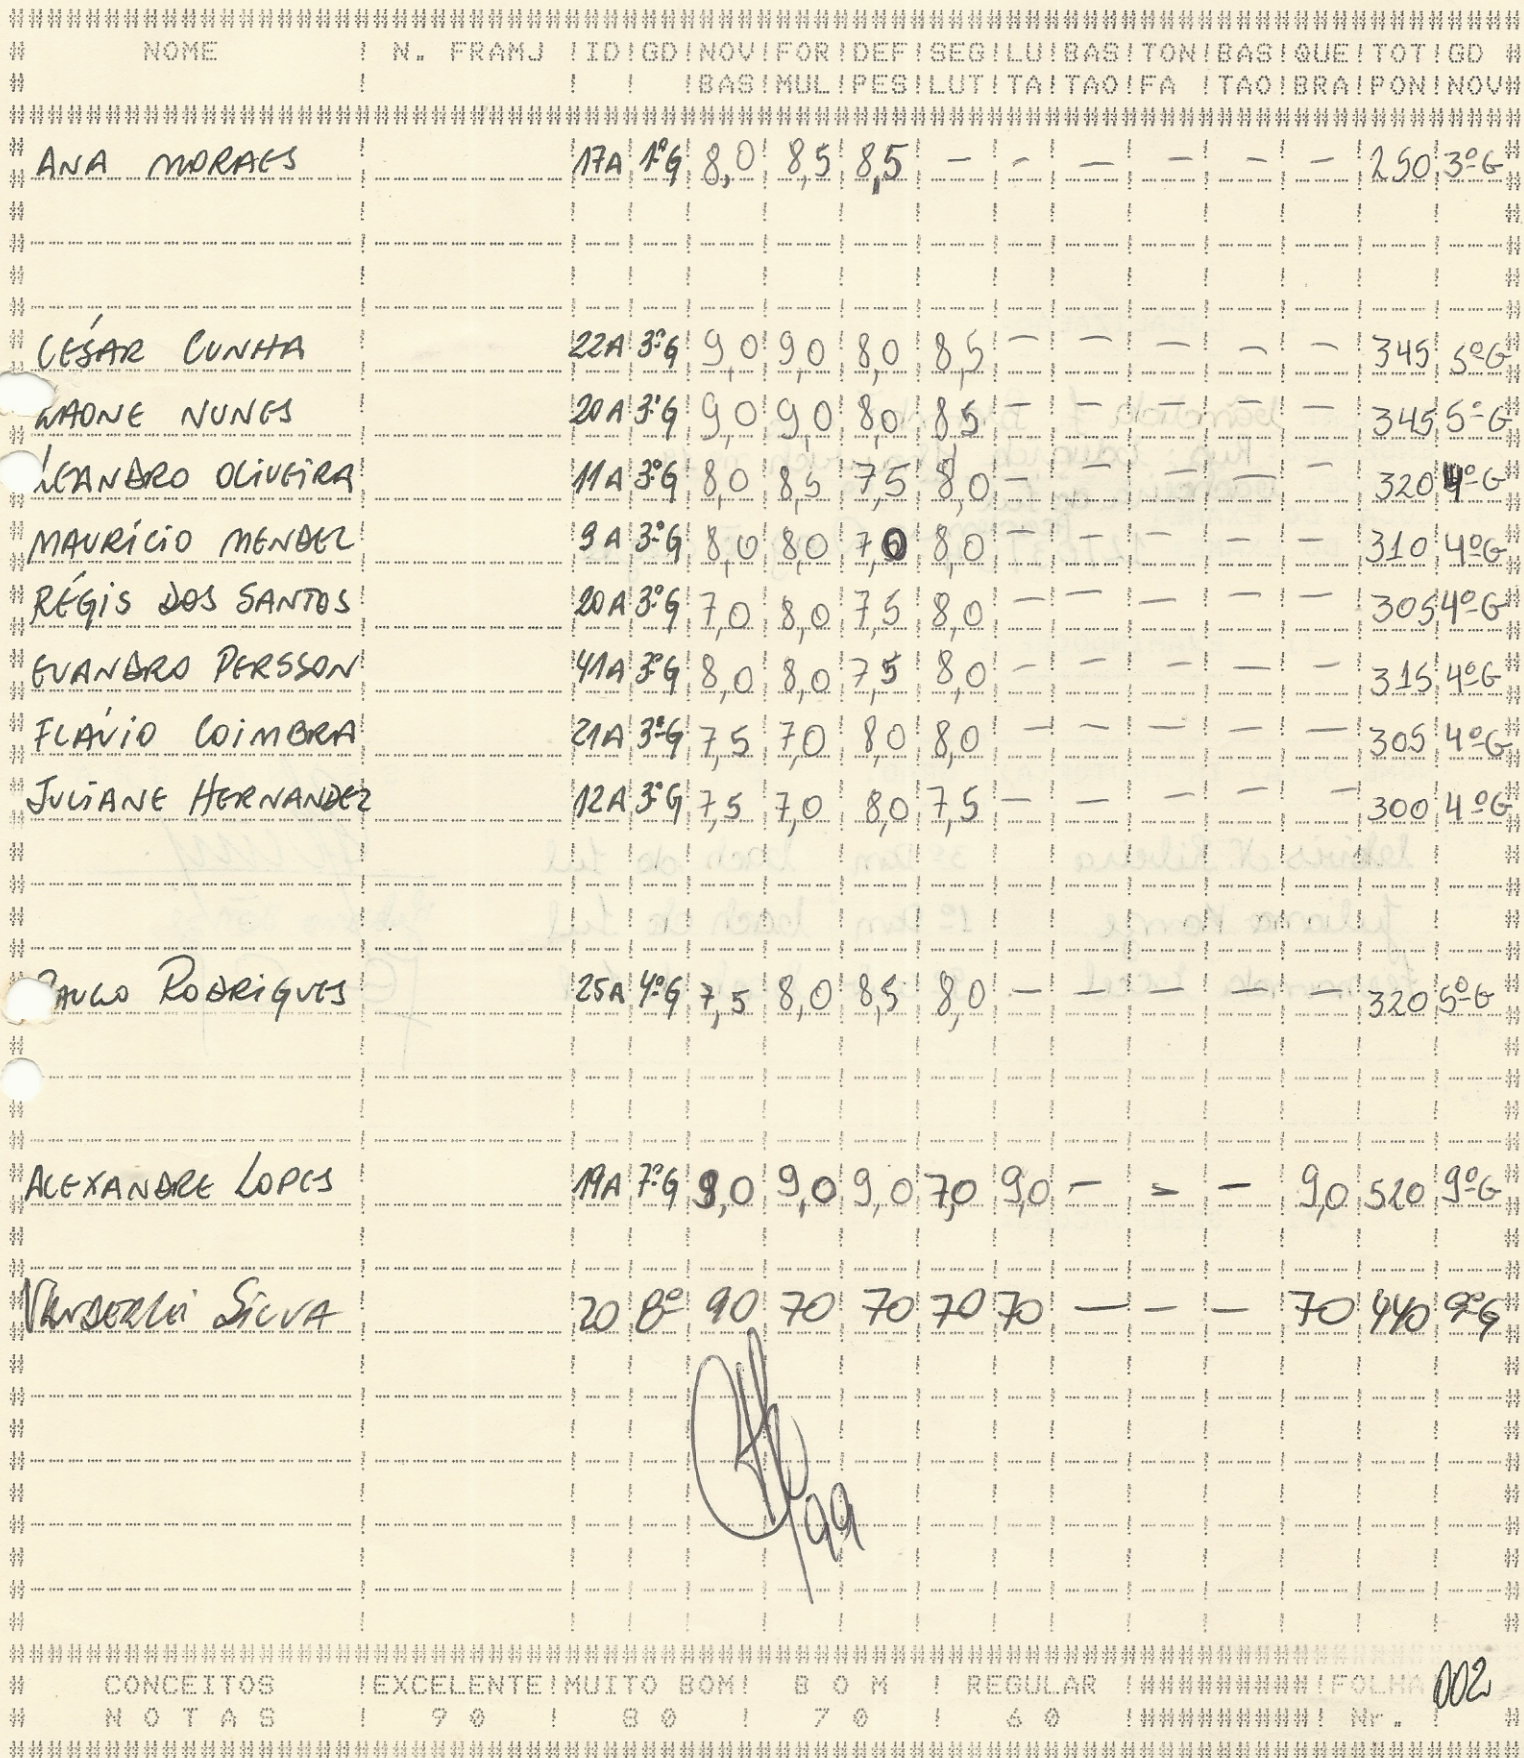 NOME ! N. FRAMJ !ID!GD!NOV!FOR!DEF!SEG!LU!BAS!TON!BAS!QUE!TOT!GD
! ! ! !BAS!MUL!PES!LUT!TA!TAO!FA !TAO!BRA!PON!NOV
ANA MORAES 17A 1ºG 8,0 8,5 8,5 — — — — — — 250 3ºG
CÉSAR CUNHA 22A 3ºG 9,0 9,0 8,0 8,5 — — — — — 345 5ºG
NUNES 20A 3ºG 9,0 9,0 8,0 8,5 — — — — — 345 5ºG
LEANDRO OLIVEIRA 11A 3ºG 8,0 8,5 7,5 8,0 — — — — — 320 4ºG
MAURÍCIO MENDEZ 9A 3ºG 8,0 8,0 7,0 8,0 — — — — — 310 4ºG
RÉGIS DOS SANTOS 20A 3ºG 7,0 8,0 7,5 8,0 — — — — — 305 4ºG
EVANDRO PERSSON 41A 3ºG 8,0 8,0 7,5 8,0 — — — — — 315 4ºG
FLÁVIO COIMBRA 21A 3ºG 7,5 7,0 8,0 8,0 — — — — — 305 4ºG
JULIANE HERNANDEZ 12A 3ºG 7,5 7,0 8,0 7,5 — — — — — 300 4ºG
PAULO RODRIGUES 25A 4ºG 7,5 8,0 8,5 8,0 — — — — — 320 5ºG
ALEXANDRE LOPES 19A 7ºG 9,0 9,0 9,0 7,0 9,0 — — — 9,0 520 9ºG
VANDERLEI SILVA 20 8º 90 70 70 70 70 — — — 70 440 9ºG
/99
CONCEITOS !EXCELENTE!MUITO BOM! B O M ! REGULAR !#########!FOLHA 002
N O T A S ! 9 0 ! 8 0 ! 7 0 ! 6 0 !#########! Nr.